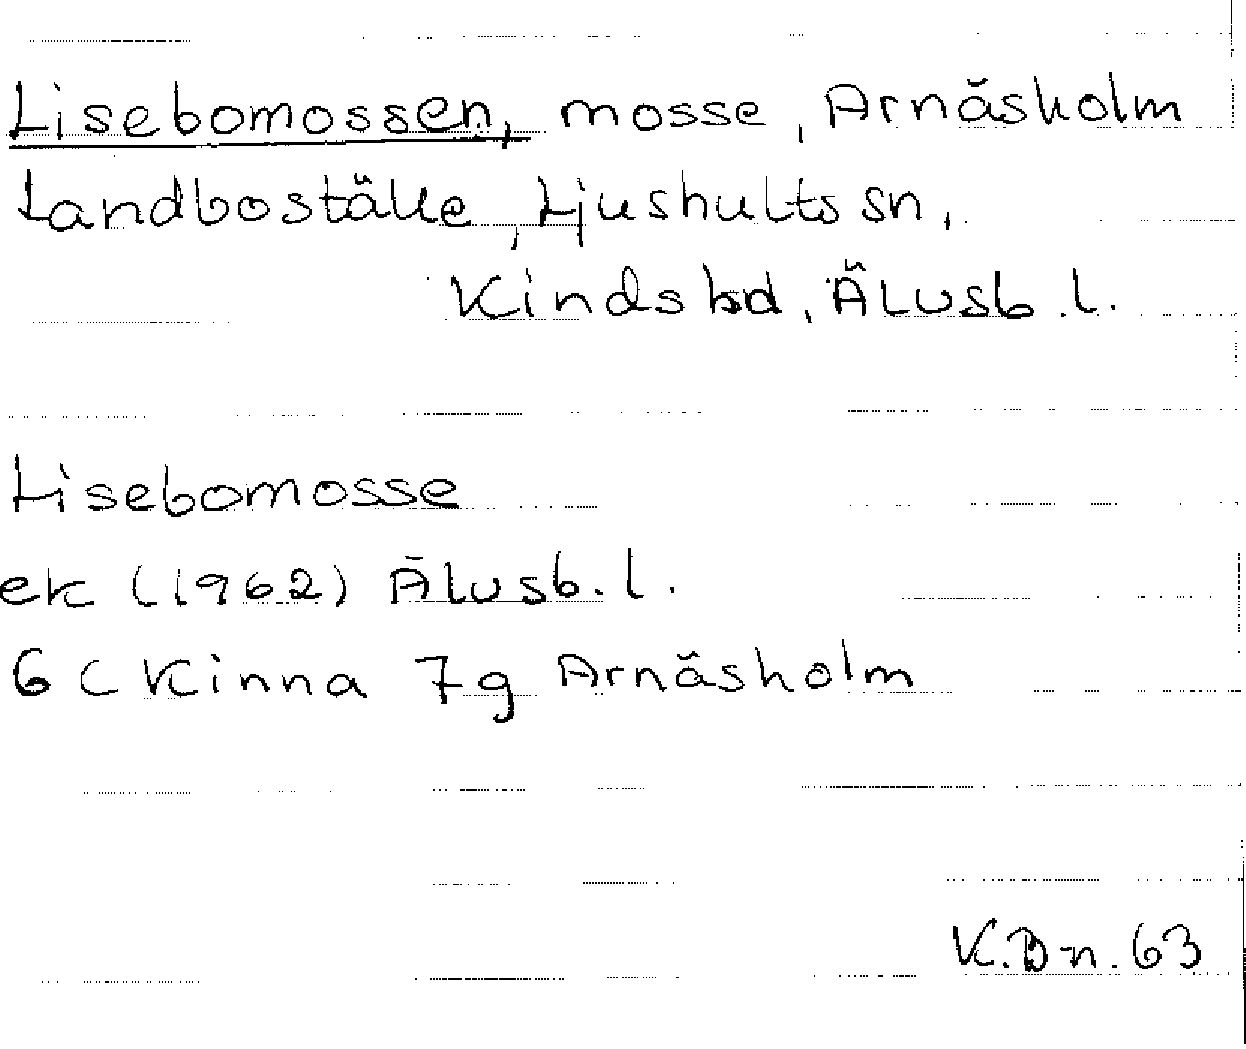 Lisebomossen, mosse, Arnåsholm
Landboställe, Ljushults sn,
Kinds hd, Älvsb. l.
Lisebomosse
ek (1962) Älvsb. l.
6 C Kinna 7g Arnåsholm
K.Dn. 63